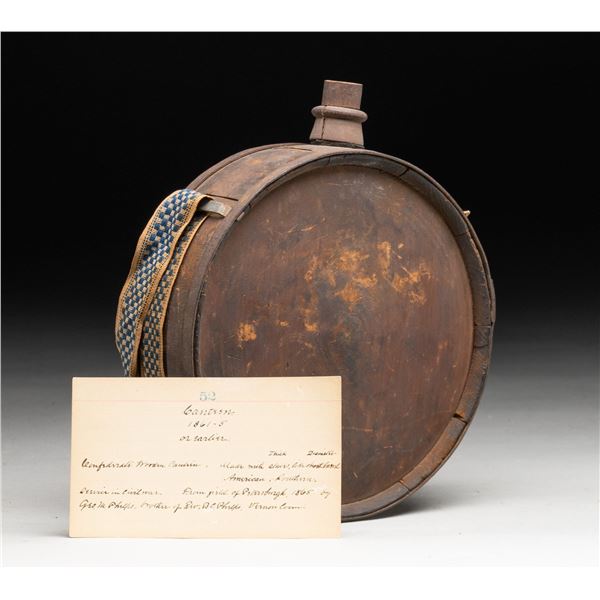 52
Canteen
1861-5
or earlier
Thick Diameter
Confederate Wooden Canteen. Made with staves, like
American, Southern
Service in Civil war. From field of Petersburgh, 1865 by
Geo. M. Phelps, brother of Rev. D.C. Phelps, Vernon Conn.